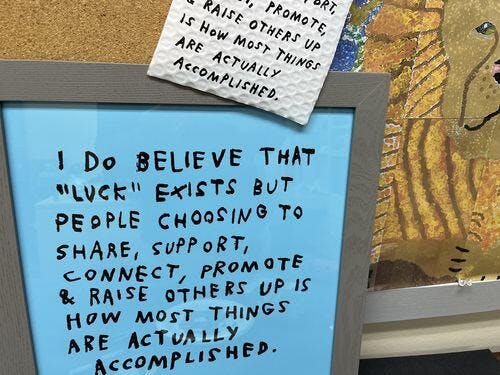 PROMOTE,
& RAISE OTHERS UP
IS HOW MOST THINGS
ARE ACTUALLY
ACCOMPLISHED.
I DO BELIEVE THAT
"LUCK" EXISTS BUT
PEOPLE CHOOSING TO
SHARE, SUPPORT,
CONNECT, PROMOTE
& RAISE OTHERS UP IS
HOW MOST THINGS
ARE ACTUALLY
ACCOMPLISHED.